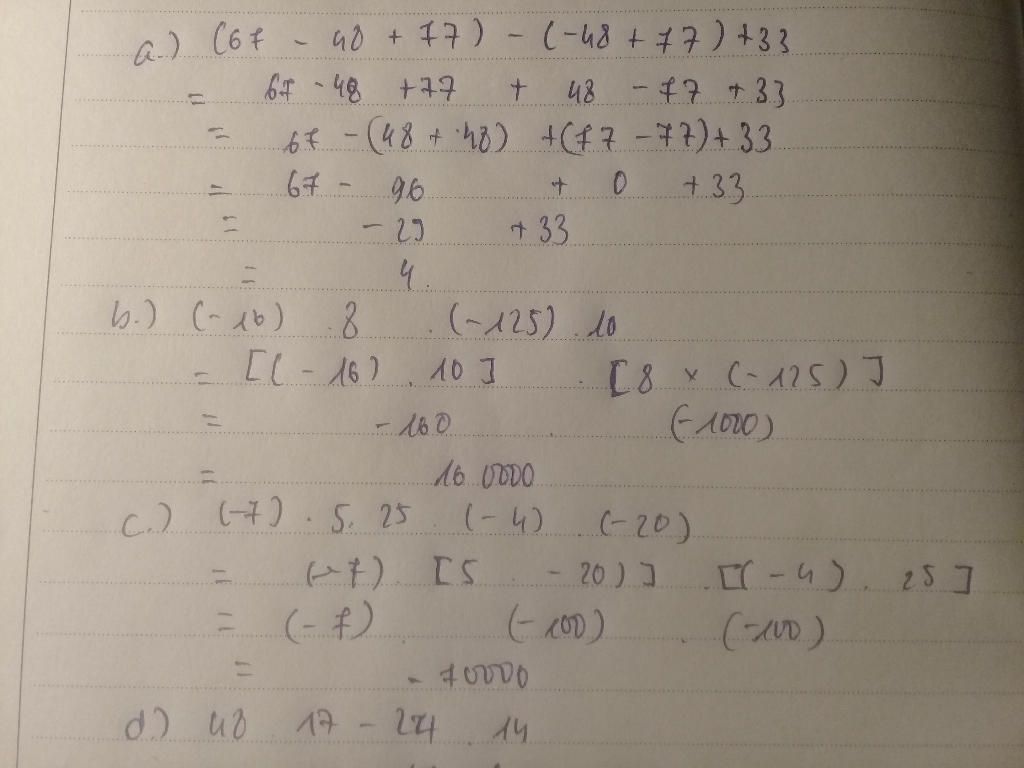 a.) (67 - 48 + 77) - (-48 + 77) + 33
= 67 - 48 + 77 + 48 - 77 + 33
= 67 - (48 + 48) + (77 - 77) + 33
= 67 - 96 + 0 + 33
= - 29 + 33
= 4
b.) (-16) . 8 . (-125) . 10
= [(-16) . 10] . [8 x (-125)]
= -160 . (-1000)
= 160000
c.) (-7) . 5 . 25 . (-4) . (-20)
= (-7) . [5 . -20)] . [(-4) . 25]
= (-7) . (-100) . (-100)
= - 70000
d.) 48 17 - 24 . 14